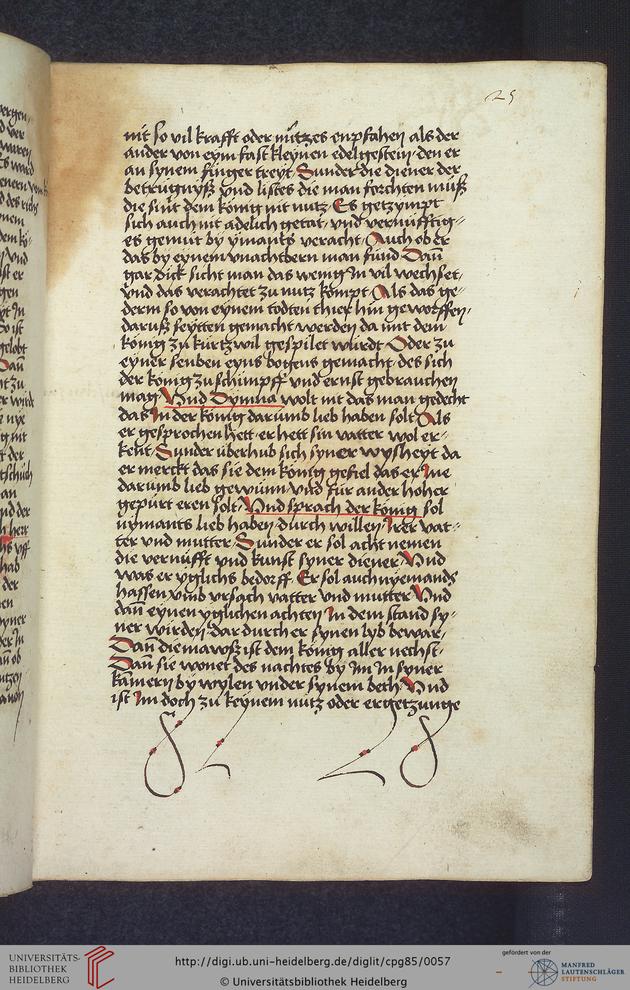 25
nit so vil krafft oder nützes enpfahen als der
ander von eym fast kleynen edelgestein den er
an synem finger treyt Sunder die diener der
betrugnyß vnd listes die man forchten muß
die sint dem konig nit nutz Es getzympt
sich auch nit adelich getat vnd vernüfftig=
es gemüt by ymants veracht Auch ob er
das by eynem vnachtbern man fünd Dañ
gar dick sicht man das wenig In vil wechset
vnd das verachtet zu nutz kompt Als das ge=
derm so von eynem todten thier hin geworffen
daruß seytten gemacht werden da mit dem
konig zu kurtzwil gespilet würdt Oder zu
eyner senben eyns bogens gemacht des sich
der konig zu schimpff vnd ernst gebrauchen
mag Vnd Dymna wolt nit das man gedecht
das In der konig darumb lieb haben solt Als
er gesprochen hett er hett sin vatter wol er=
kent Sunder überhub sich syner wysheyt da
er merckt das sie dem konig gefiel das er Ine
darumb lieb gewünn vnd für ander hoher
gepürt eren solt Vnd sprach der konig sol
nymants lieb haben durch willen Irer vat=
ter vnd mutter Sunder er sol acht nemen
die vernüfft vnd kunst syner diener Vnd
was er yglichs bedorff Er sol auch nyemands
hassen vmb vrsach vatter vnd mutter Vnd
dañ eynen yglichen achten In dem stand sy=
ner wirden dar durch er synen lyb bewar
Dañ die mawß ist dem konig aller nechst
Dañ sie wonet des nachtes by Im In syner
kamern by wylen vnder synem beth Vnd
ist Im doch zu keynem nutz oder ergetzunge
UNIVERSITÄTS-
BIBLIOTHEK
HEIDELBERG
http://digi.ub.uni-heidelberg.de/diglit/cpg85/0057
© Universitätsbibliothek Heidelberg
gefördert von der
MANFRED
LAUTENSCHLÄGER
STIFTUNG